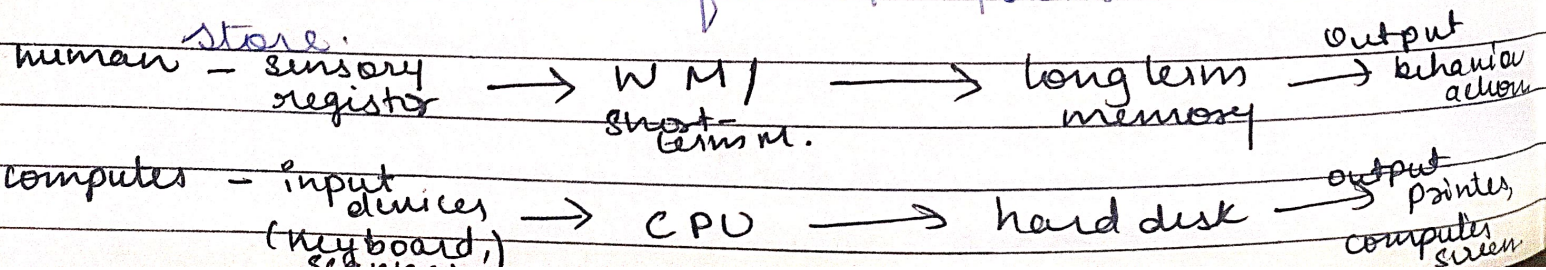 store.
human - sensory registor → WM/ short-term M. → long term memory → output behaviour action
computer - input devices (keyboard, → CPU → hard disk → output printer, computer screen